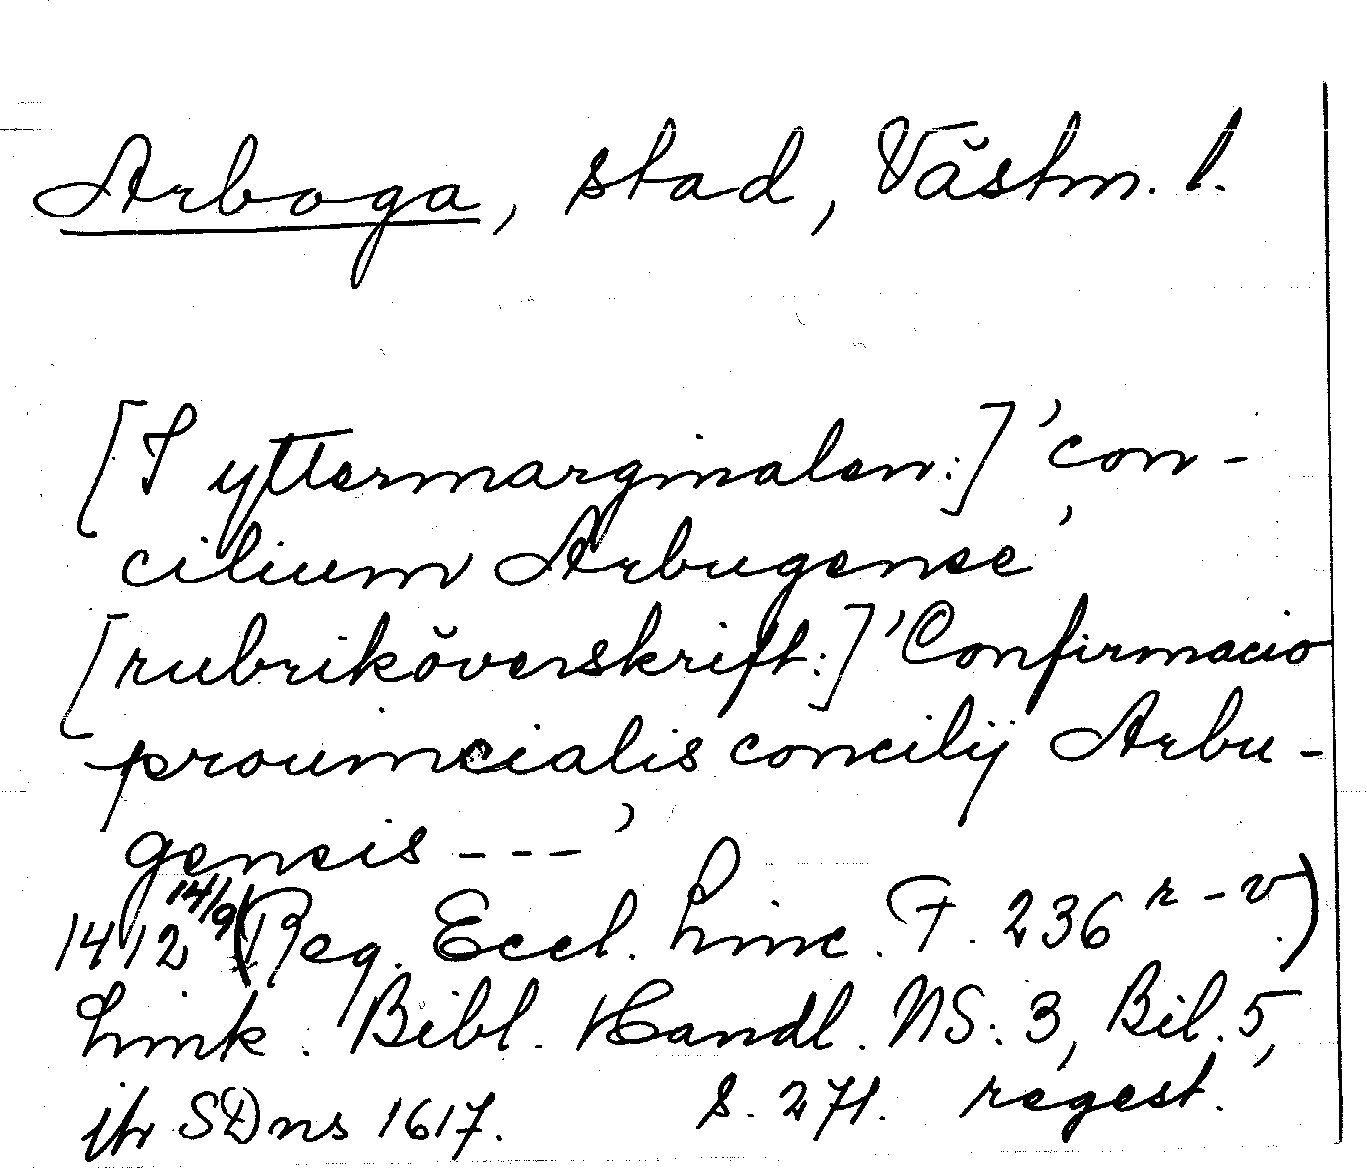 Arboga, stad, Västm. l.
[I yttermarginalen:] 'con-
cilium Arbugense'
[rubriköverskrift:] 'Confirmacio
prouincialis concilij Arbu-
gencis ---'
1412 14/9 (Reg. Eccl. Linc. F. 236 r-v.)
Link. Bibl. Handl. NS. 3, Bil. 5,
jfr SDns 1617. s. 271. regest.